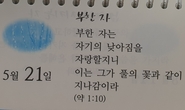 부한 자
부한 자는
자기의 낮아짐을
자랑할지니
이는 그가 풀의 꽃과 같이
지나감이라
(약 1:10)
5월 21일